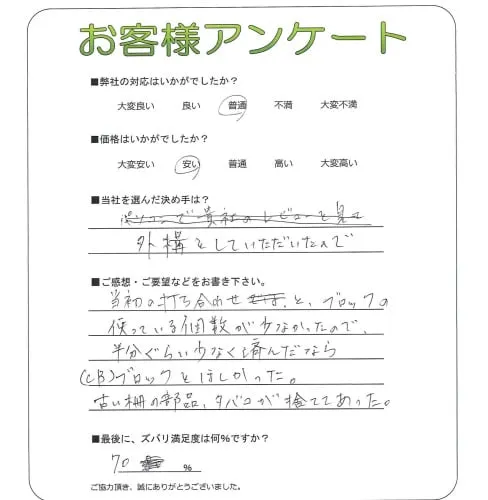 お客様アンケート
■弊社の対応はいかがでしたか？
大変良い 良い 普通 不満 大変不満
■価格はいかがでしたか？
大変安い 安い 普通 高い 大変高い
■当社を選んだ決め手は？
パソコンで貴社のレビューを見て
外構をしていただいたので
■ご感想・ご要望などをお書き下さい。
当初の打ち合わせ と、ブロックの
使っている個数が少なかったので、
半分ぐらい少なく済んだなら
(CB)ブロックをほしかった。
古い柵の部品、タバコが捨ててあった。
■最後に、ズバリ満足度は何%ですか？
70 %
ご協力頂き、誠にありがとうございました。